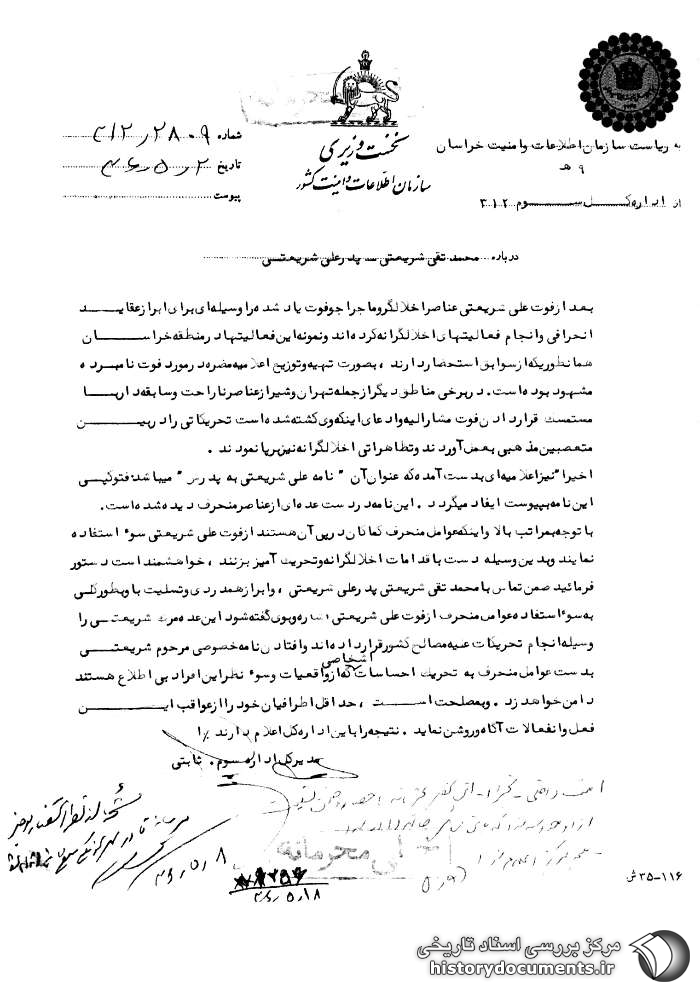 به ریاست سازمان اطلاعات و امنیت خراسان
۹ هـ
از اداره کل سوم ۳۱۲
نخست وزیری
سازمان اطلاعات و امنیت کشور
شماره ۳۱۲/۲۸۰۹
تاریخ ۳۶/۵/۲
پیوست
درباره محمد تقی شریعتی ــ پدر علی شریعتی
بعد از فوت علی شریعتی عناصر اخلالگر و ماجراجو فوت یاد شده را وسیله‌ای برای ابراز عقاید
انحرافی و انجام فعالیتهای اخلالگرانه کرده‌اند و نمونه این فعالیتها در منطقه خراسان
همانطوریکه از سوابق استحضار دارند ، بصورت تهیه و توزیع اعلامیه مضره در مورد فوت نامبرده
مشهود بوده است. در برخی مناطق دیگر از جمله تهران و شیراز عناصر ناراحت و سابقه‌دار با
مستمسک قرار دادن فوت مشارالیه و ادعای اینکه وی کشته شده است تحریکاتی را در بین
متعصبین مذهبی بعمل آوردند و تظاهراتی اخلالگرانه نیز برپا نمودند .
اخیرا" نیز اعلامیه‌ای بدست آمده که عنوان آن " نامه علی شریعتی به پدرش " میباشد فتوکپی
این نامه به پیوست ایفاد میگردد . این نامه در دست عده‌ای از عناصر منحرف دیده شده است.
با توجه بمراتب بالا و اینکه عوامل منحرف کماکان در پی آن هستند از فوت علی شریعتی سوء استفاده
نمایند و بدین وسیله دست باقدامات اخلالگرانه و تحریک آمیز بزنند ، خواهشمند است دستور
فرمائید ضمن تماس با محمد تقی شریعتی پدر علی شریعتی ، و ابراز همدردی و تسلیت با وی بطور کلی
به سوء استفاده عوامل منحرف از فوت علی شریعتی اشاره و بوی گفته شود این عده مرگ شریعتی را
وسیله انجام تحریکات علیه مصالح کشور قرار داده‌اند و افتادن نامه خصوصی مرحوم شریعتی
بدست عوامل منحرف به تحریک احساسات اشخاصی که از واقعیات و سوء نظر این افراد بی اطلاع هستند
دامن خواهد زد . و بمصلحت است ، حداقل اطرافیان خود را از عواقب این
فعل و انفعالات آگاه و روشن نماید . نتیجه را باین اداره کل اعلام دارند /ا
مدیرکل اداره سوم . ثابتی
۳۶/۵/۸
۳۶/۵/۱۸
خیلی محرمانه
۳۵-۱۱۶ ش
مرکز بررسی اسناد تاریخی
historydocuments.ir